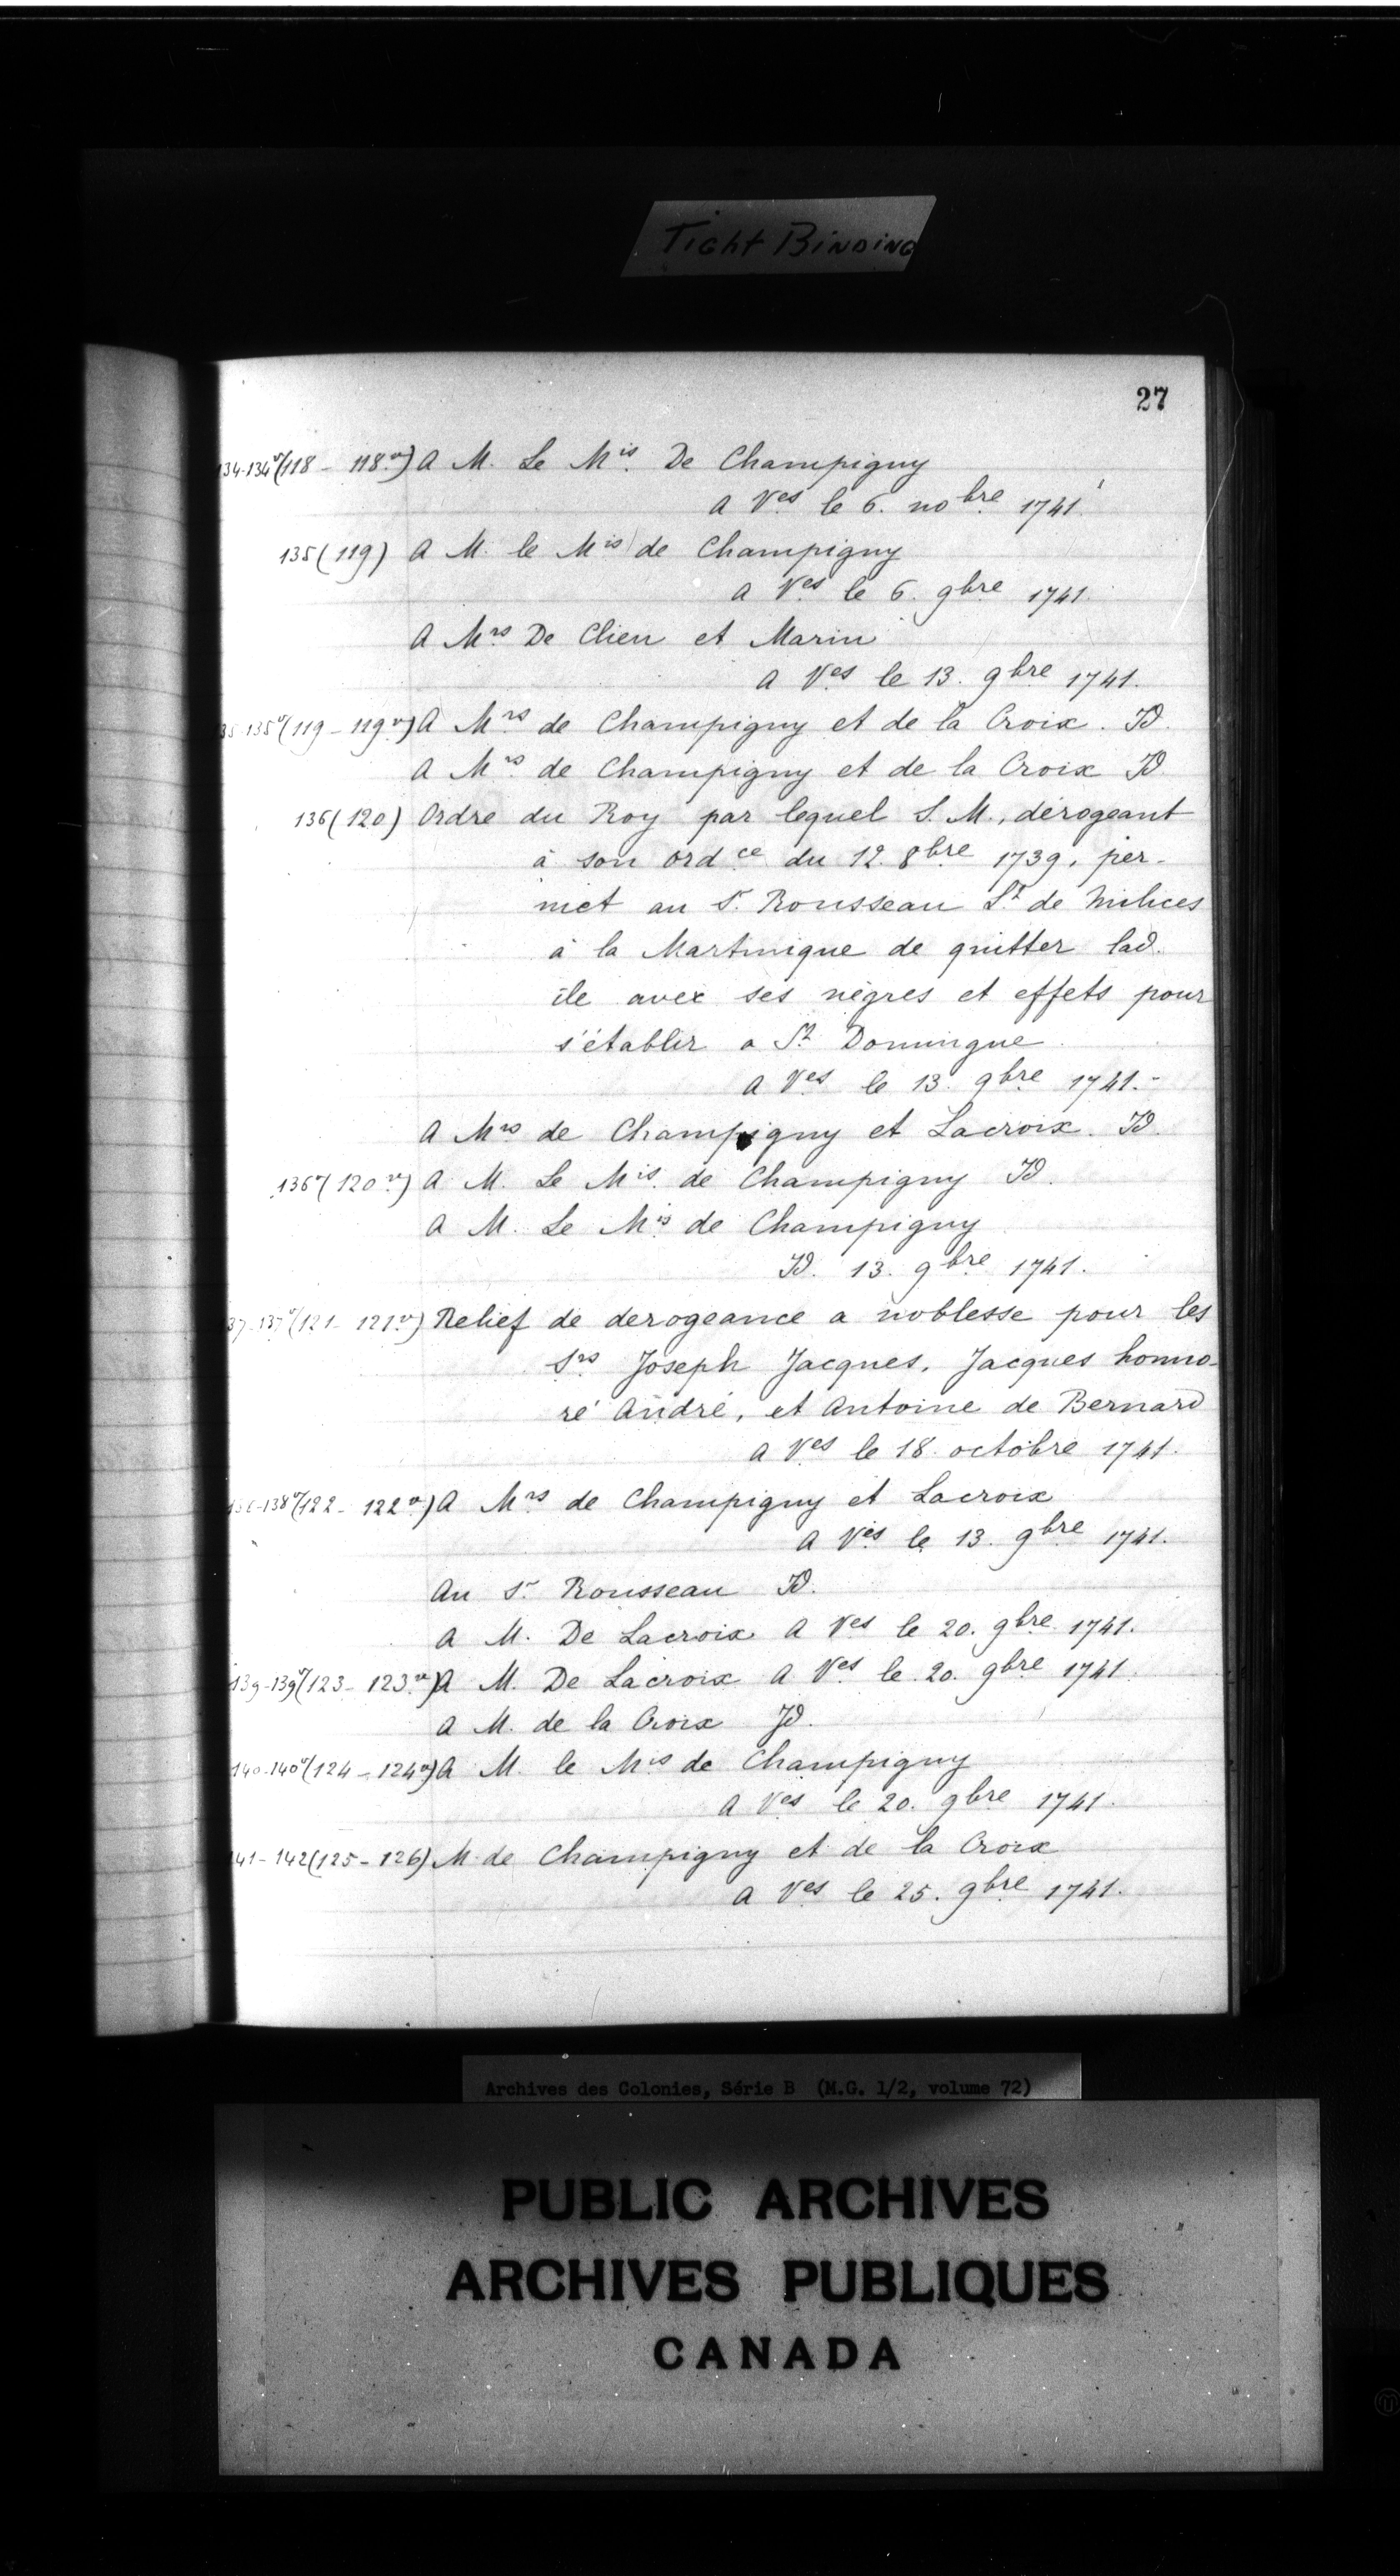 Tight Binding
27
134-134v(118 - 118vo) A M. Le Mis De Champigny
A Ves le 6. nobre 1741.
135 (119) A M. le Mis de Champigny
A Ves le 6. gbre 1741.
A Mrs De Clieu et Marin
A Ves le 13. gbre 1741.
35-135v (119 - 119vo) A Mrs de Champigny et de la Croix. Id.
A Mrs de Champigny et de la Croix Id.
136 (120) Ordre du Roy par lequel S. M., dérogeant
à son ordce du 12. 8bre 1739, per-
met au Sr. Rousseau Lt de Milices
à la Martinique de quitter lad.
île avec ses nègres et effets pour
s'établir a St Domingue.
A Ves le 13. gbre 1741.-
A Mrs de Champigny et Lacroix. Id.
136v (120 vo) A M. Le Mis. de Champigny Id.
A M. Le Mis de Champigny
Id. 13. gbre 1741.
37-137v (121 - 121vo) Relief de derogeance a noblesse pour les
Srs Joseph Jacques, Jacques honno-
ré André, et Antoine de Bernard
A Ves le 18. octobre 1741.
138-138v (122 - 122vo) A Mrs de Champigny et Lacroix
A Ves le 13. gbre 1741.
Au Sr Rousseau Id.
A M. De Lacroix A Ves le 20. gbre 1741.
139-139v (123 - 123vo) A M. De Lacroix A Ves le 20. gbre 1741
A M. de la Croix Id.
140-140v (124 - 124vo) A M. le Mis de Champigny
A Ves le 20. gbre 1741.
141 - 142 (125 - 126) M. de Champigny et de la Croix
A Ves le 25. gbre 1741.
Archives des Colonies, Série B (M.G. 1/2, volume 72)
PUBLIC ARCHIVES
ARCHIVES PUBLIQUES
CANADA